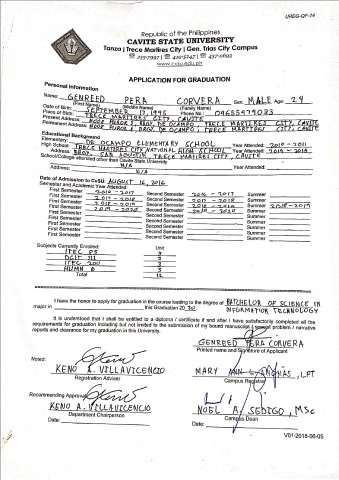 UREG-QF-14
Republic of the Philippines
CAVITE STATE UNIVERSITY
Tanza | Trece Martires City | Gen. Trias City Campus
www.cvsu.edu.ph
APPLICATION FOR GRADUATION
Personal Information
Name: GENREED PERA CORVERA Sex: MALE Age: 24
(First Name) (Middle Name) (Family Name)
Date of Birth: SEPTEMBER 17, 1995 Phone No.: 09655979083
Place of Birth: TRECE MARTIRES CITY, CAVITE
Present Address: PUROK 2, BRGY. DE OCAMPO, TRECE MARTIRES CITY, CAVITE
Permanent Address: PUROK 2, BRGY. DE OCAMPO, TRECE MARTIRES CITY, CAVITE
Educational Background
Elementary: DE OCAMPO ELEMENTARY SCHOOL Year Attended: 2010-2011
High School: TRECE MARTIRES CITY NATIONAL HIGH SCHOOL Year Attended:
Address: BRGY. SAN AGUSTIN, TRECE MARTIRES CITY, CAVITE
School/College attended other than Cavite State University
N/A Year Attended:
Address: N/A
Date of Admission to CvSU: AUGUST 16, 2016
Semester and Academic Year Attended:
First Semester 2016-2017 Second Semester 2016-2017 Summer
First Semester 2017-2018 Second Semester 2017-2018 Summer
First Semester 2018-2019 Second Semester 2018-2019 Summer 2018-2019
First Semester 2019-2020 Second Semester 2019-2020 Summer
First Semester Second Semester Summer
First Semester Second Semester Summer
First Semester Second Semester Summer
First Semester Second Semester Summer
Subjects Currently Enrolled: Unit
ITEC 95 3
DCIT 111 3
ITEC 200 3
HUMN 3
Total 12
I have the honor to apply for graduation in the course leading to the degree of BACHELOR OF SCIENCE IN
major in this Graduation 20 20 INFORMATION TECHNOLOGY
It is understood that I shall be entitled to a diploma / certificate if and after I have satisfactorily completed all the
requirements for graduation including but not limited to the submission of my bound manuscript / special problem / narrative
reports and clearance for my graduation in this University.
GENREED PERA CORVERA
Printed name and Signature of Applicant
Noted:
KENO A. VILLAVICENCIO
Registration Adviser
MARY ANN L. , LPT
Campus Registrar
Recommending Approval:
KENO A. VILLAVICENCIO
Department Chairperson
Date:
NOEL A. SEDIGO, MSc
Campus Dean
Date:
V01-2018-06-05